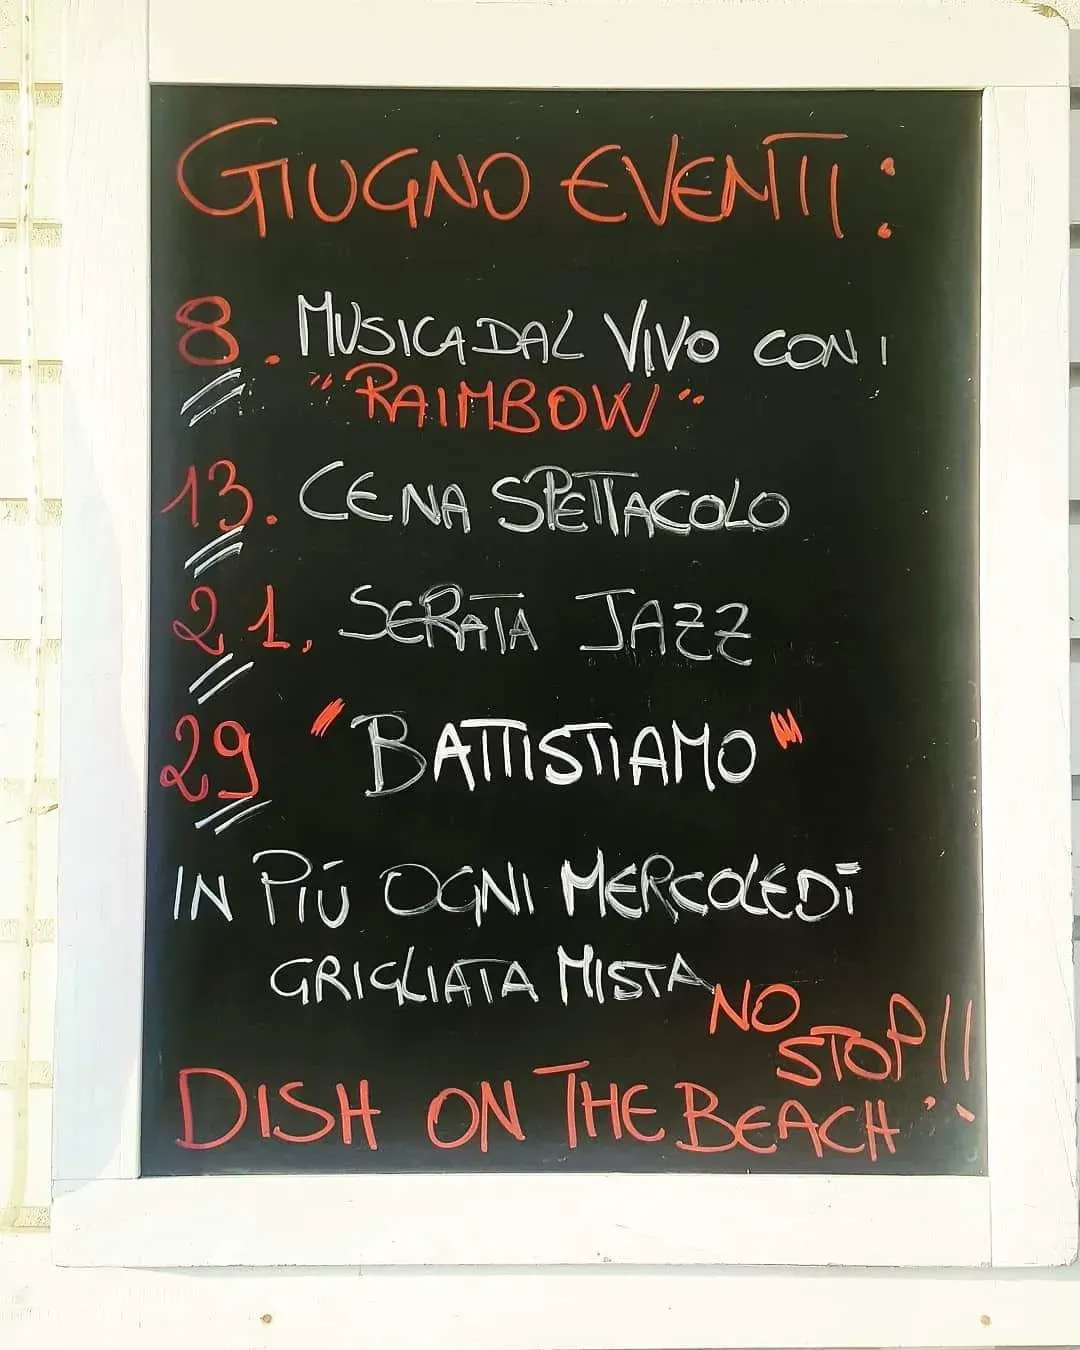 GIUGNO EVENTI:
8. MUSICA DAL VIVO CON I
"RAIMBOW"
13. CENA SPETTACOLO
21. SERATA JAZZ
29 "BATTISTIAMO"
IN PIÙ OGNI MERCOLEDÌ
GRIGLIATA MISTA
NO
STOP!!
DISH ON THE BEACH